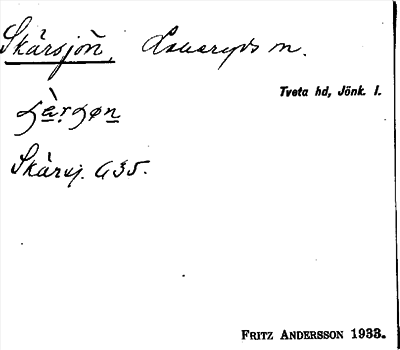 Skärsjön, Lekeryds sn.
Tveta hd, Jönk. l.
Skärsj. G35.
FRITZ ANDERSSON 1933.